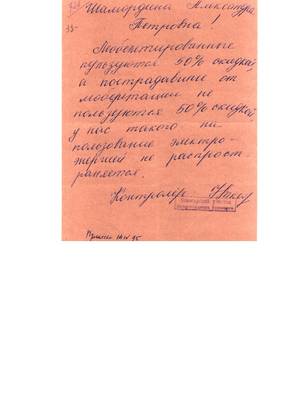 33-
Шамордина Александра
Петровна!
Реабилитированные
пользуются 50% скидкой,
а пострадавшие от
не
пользуются 50% скидкой
у нас такого на
пользование электро-
энергией не распрост-
раняется.
Контролёр
участок